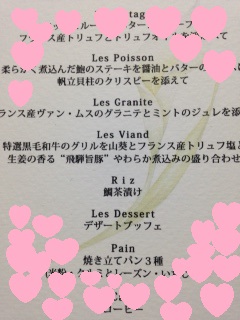 tag
フランス産トリュフとトリュフオイルを添えて
Les Poisson
柔らかく煮込んだ鮑のステーキを醤油とバターの
帆立貝柱のクリスピーを添えて
Les Granite
ランス産ヴァン・ムスのグラニテとミントのジュレを添
Les Viand
特選黒毛和牛のグリルを山葵とフランス産トリュフ塩と
生姜の香る“飛騨旨豚”やわらか煮込みの盛り合わせ
Riz
鯛茶漬け
Les Dessert
デザートブッフェ
Pain
焼き立てパン３種
コーヒー